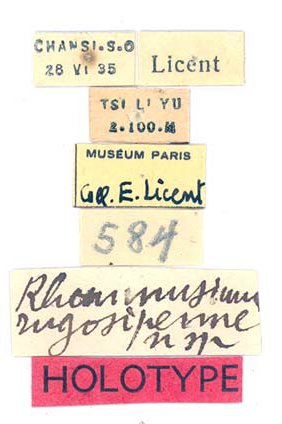 CHANSI.S.O
28 VI 35
Licent
TSI LI YU
2.100.M
MUSEUM PARIS
Col. E. Licent
584
Rhamnusium
rugosipenne
n sp
HOLOTYPE